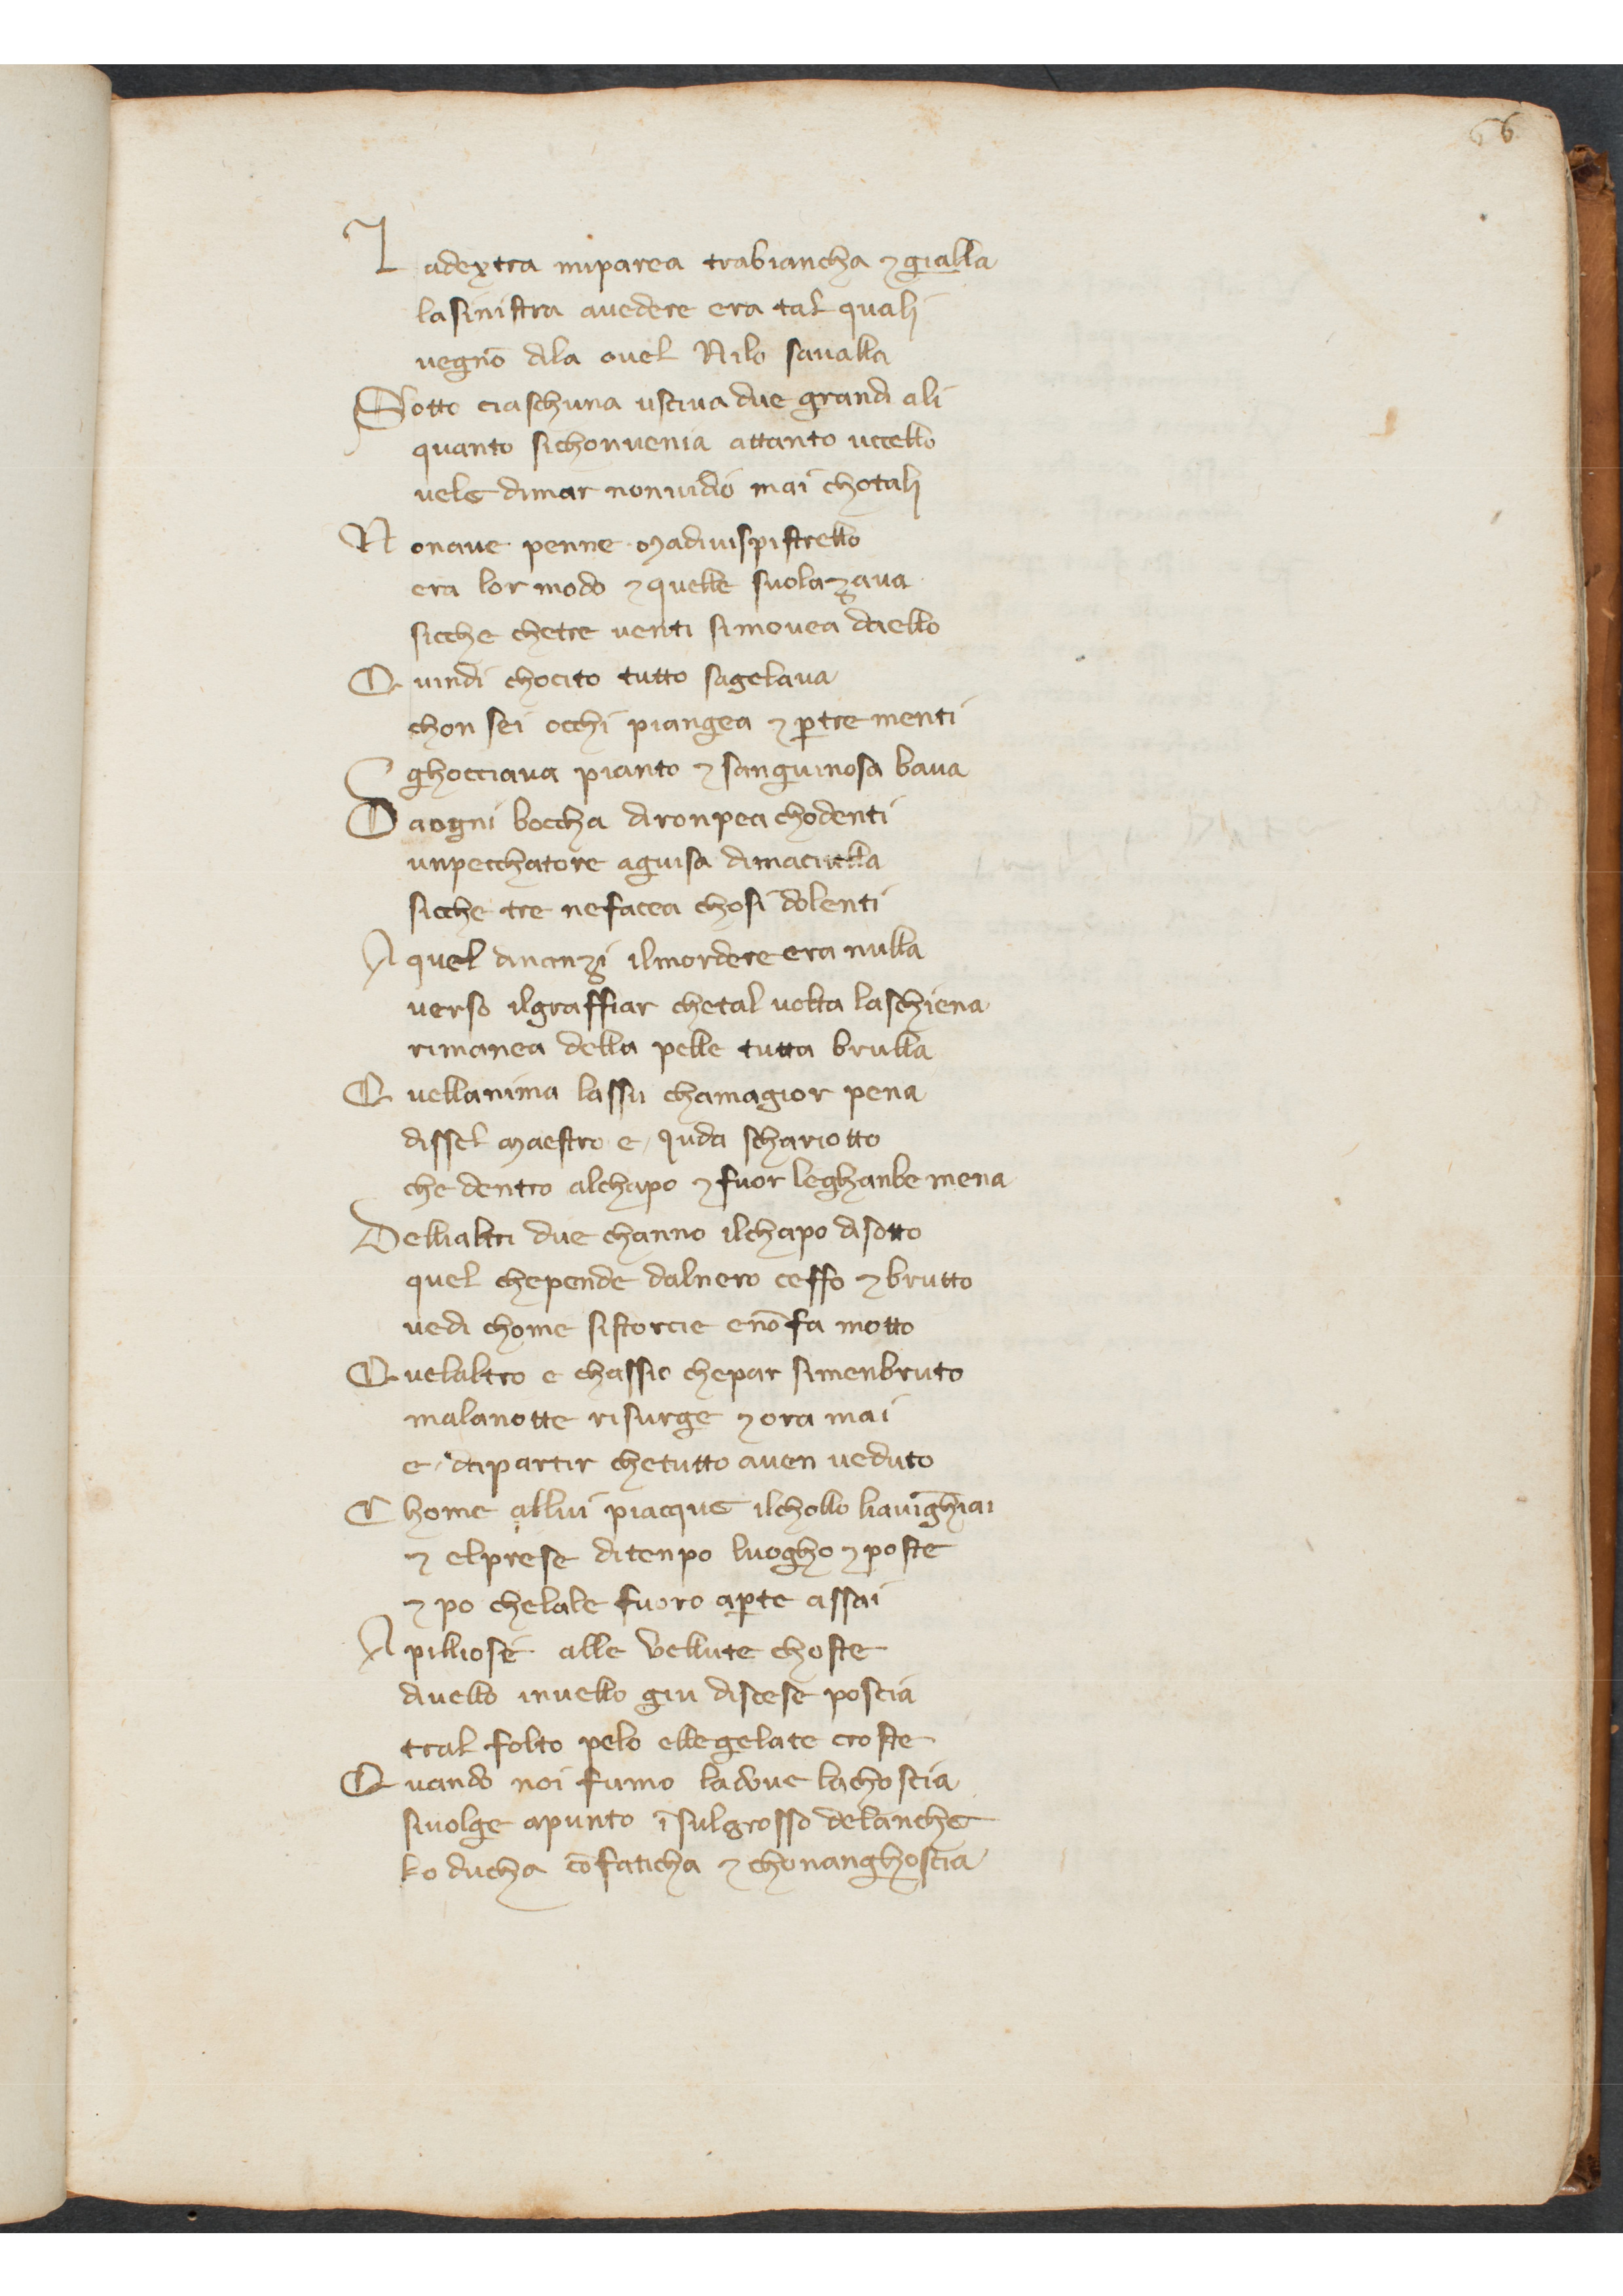 66
Ladextra miparea trabiancha ⁊ gialla
lasinistra auedere era tal qualj
vegnō dila ouel Nilo savalla
Sotto ciaschuna usciua due grandi ali
quanto sichonvenia attanto uccello
vele dimar nonuidio mai chotalj
Nonave penne madiuispistrello
era lor modo ⁊ quelle suolazava
sicche chetre venti simovea daello
Quindi chocito tutto sagelava
chon sei occhi piangea ⁊ ꝑtre menti
ghocciaua pianto ⁊ sanguinosa bava
Daogni boccha dironpea chodenti
unpecchatore aguisa dimaciulla
sicche tre nefacea chosi dolenti
Aquel dinanzi ilmordere era nulla
verso ilgraffiar chetal volta laschiena
rimanea della pelle tutta brulla
Quellanima lassu chamagior pena
dissel maestro e Juda schariotto
che dentro alchapo ⁊ fuor leghanbe mena
Delliàltri due channo ilchapo disotto
quel chepende dalnero ceffo ⁊ brutto
vedi chome sistorcie enō fa motto
Quelaltro e chassio chepar simenbruto
malanotte risurge ⁊ ora mai
e dapartir chetutto auen veduto
Chome allui piacque ilchollo liavīghiai
⁊ elprese ditenpo luogho ⁊ poste
⁊ po chelale fuoro aꝑte assai
Apilliose alle vellute choste
divello invello giu discese poscia
tral folto pelo ellegelate croste
Quando noi fumo ladove lachoscia
sivolge apunto ī sulgrosso delanche
lo ducha cō faticha ⁊ chonanghoscia